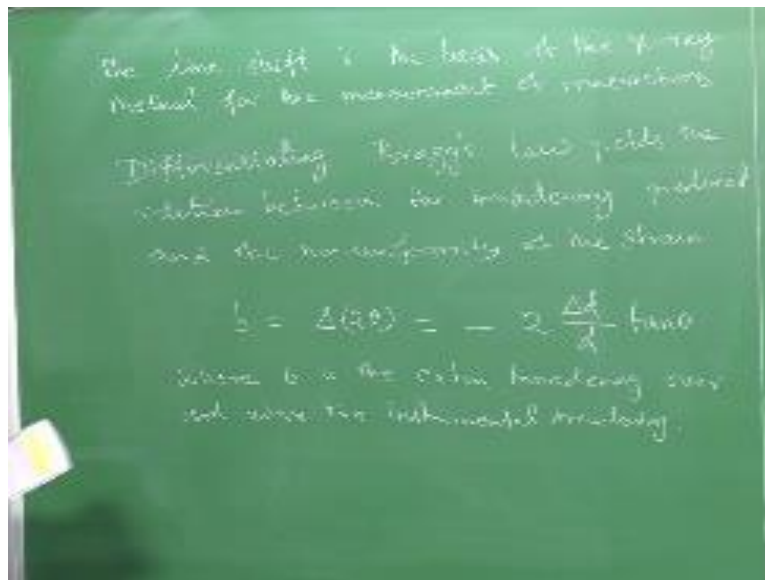 The line shift is the basis of the X-ray
method for the measurement of
Differentiating Bragg's law yields the
relation between the broadening produced
and the non uniformity of the strain
b = Δ(2θ) = - 2 Δd/d tanθ
where b is the extra broadening over
and above the instrumental broadening.